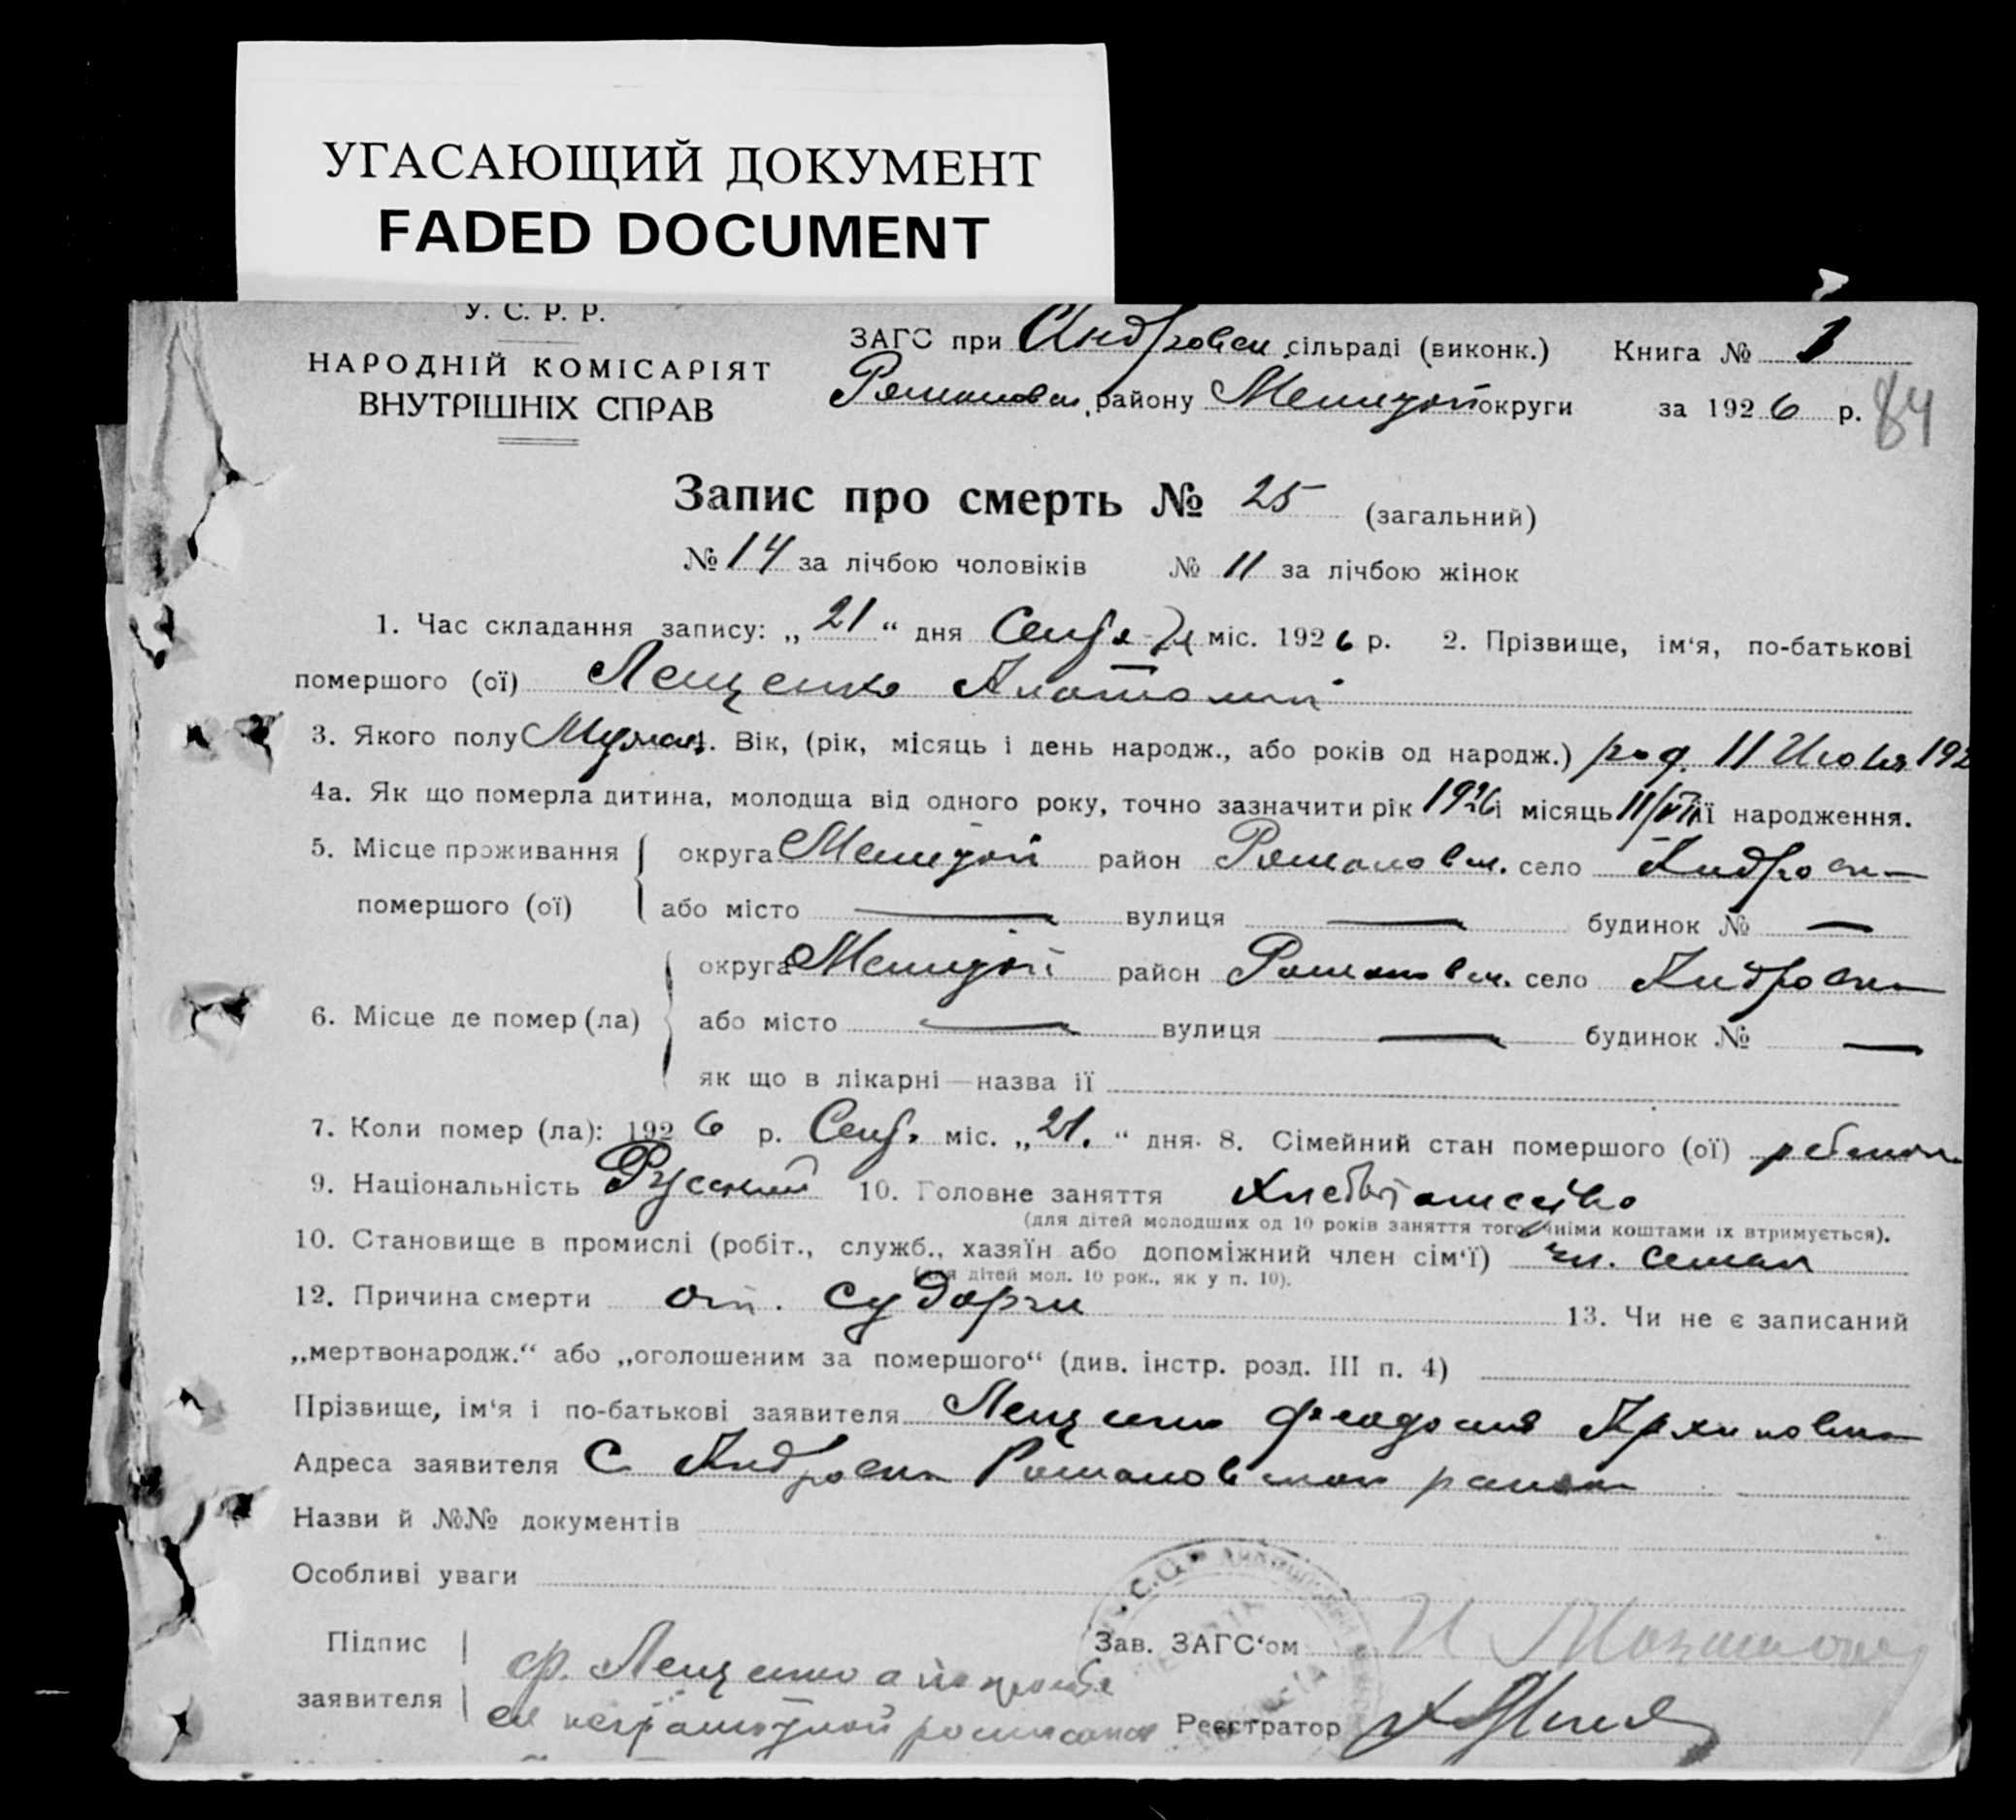 УГАСАЮЩИЙ ДОКУМЕНТ
FADED DOCUMENT
У. С. Р. Р.
НАРОДНІЙ КОМІСАРІЯТ
ВНУТРІШНІХ СПРАВ
ЗАГС при Андровск. сільраді (виконк.) Книга № 1
Романовск. району Мелитоп округи за 1926 р. 84
Запис про смерть № 25 (загальний)
№ 14 за лічбою чоловіків № 11 за лічбою жінок
1. Час складання запису: „21“ дня Сент. міс. 1926 р. 2. Прізвище, ім‘я, по-батькові
помершого (ої) Лещенко Анатолий
3. Якого полу Мужск. Вік, (рік, місяць і день народж., або років од народж.) род. 11 Июля 192
4а. Як що померла дитина, молодща від одного року, точно зазначити рік 1926 і місяць 11/VII її народження.
5. Місце проживання помершого (ої) округа Мелитоп район Романовск. село Андровка
або місто — вулиця — будинок № —
6. Місце де помер (ла) округа Мелитоп район Романовск. село Андровка
або місто — вулиця — будинок № —
як що в лікарні—назва її
7. Коли помер (ла): 1926 р. Сент. міс. „21.“ дня. 8. Сімейний стан помершого (ої) ребенок
9. Національність Русский 10. Головне заняття Хлебопашество
(для дітей молодших од 10 років заняття того, чиїми коштами їх втримується).
10. Становище в промислі (робіт., служб., хазяїн або допоміжний член сім‘ї) чл. семьи
(для дітей мол. 10 рок., як у п. 10).
12. Причина смерти от. судорги 13. Чи не є записаний
„мертвонародж.“ або „оголошеним за помершого“ (див. інстр. розд. III п. 4)
Прізвище, ім‘я і по-батькові заявителя Лещенко Феодосия Архиповна
Адреса заявителя С Андровка Романовского района
Назви й №№ документів
Особливі уваги
Підпис заявителя ф. Лещенко а по просьбе
ея неграмотной росписался
Зав. ЗАГС‘ом
Реєстратор